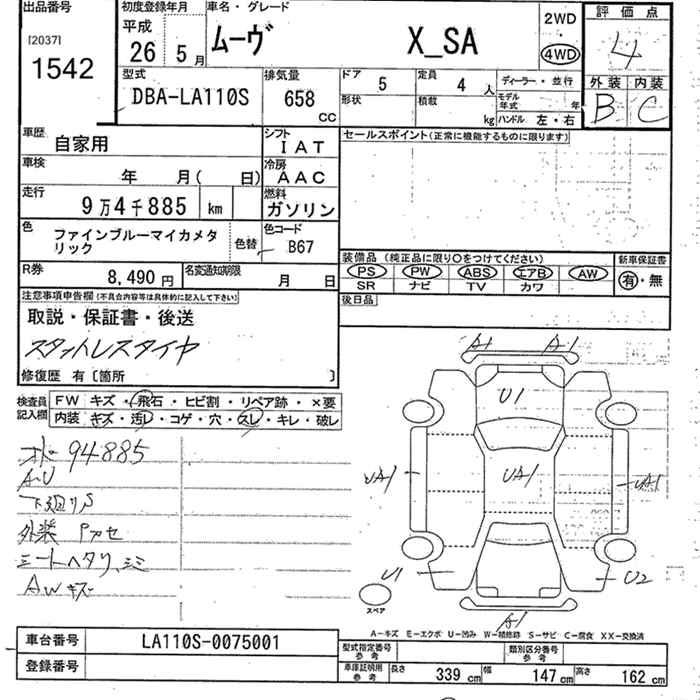 出品番号 初度登録年月 車名・グレード 2WD・4WD 評価点
[2037]
1542
平成 26 5月 ムーヴ X_SA 4
外装 内装
B C
型式 DBA-LA110S 排気量 658 CC ドア 5 定員 4人 ディーラー・並行
形状 積載 kg モデル年式 年
ハンドル 左・右
車歴 自家用 シフト IAT セールスポイント(正常に機能するものに限ります)
車検 年 月( 日) 冷房 AAC
走行 9万4千885 km 燃料 ガソリン
色 ファインブルーマイカメタリック 色替 色コード B67
装備品 (純正品に限り○をつけてください) 新車保証書
PS PW ABS エアB AW 有・無
SR ナビ TV カワ
R券 8,490円 名変通知期限 月 日
後日品
注意事項申告欄 (不具合内容等は具体的に記入して下さい)
取説・保証書・後送
スタットレスタイヤ
修復歴 有 [箇所 ]
検査員記入欄 FW キズ・飛石・ヒビ割・リペア跡・×要
内装 キズ・汚レ・コゲ・穴・スレ・キレ・破レ
94885
A・U
下廻りS
外装 Pカセ
シートヘタリ、シミ
AWキズ
A1 A1
U1
UA1 UA1 UA1
U1 U2
A1
スペア
A-キズ E-エクボ U-凹み W-補修跡 S-サビ C-腐食 XX-交換済
車台番号 LA110S-0075001
登録番号
型式指定番号 参考 類別区分番号 参考
車庫証明用 参考 長さ 339 cm 幅 147 cm 高さ 162 cm